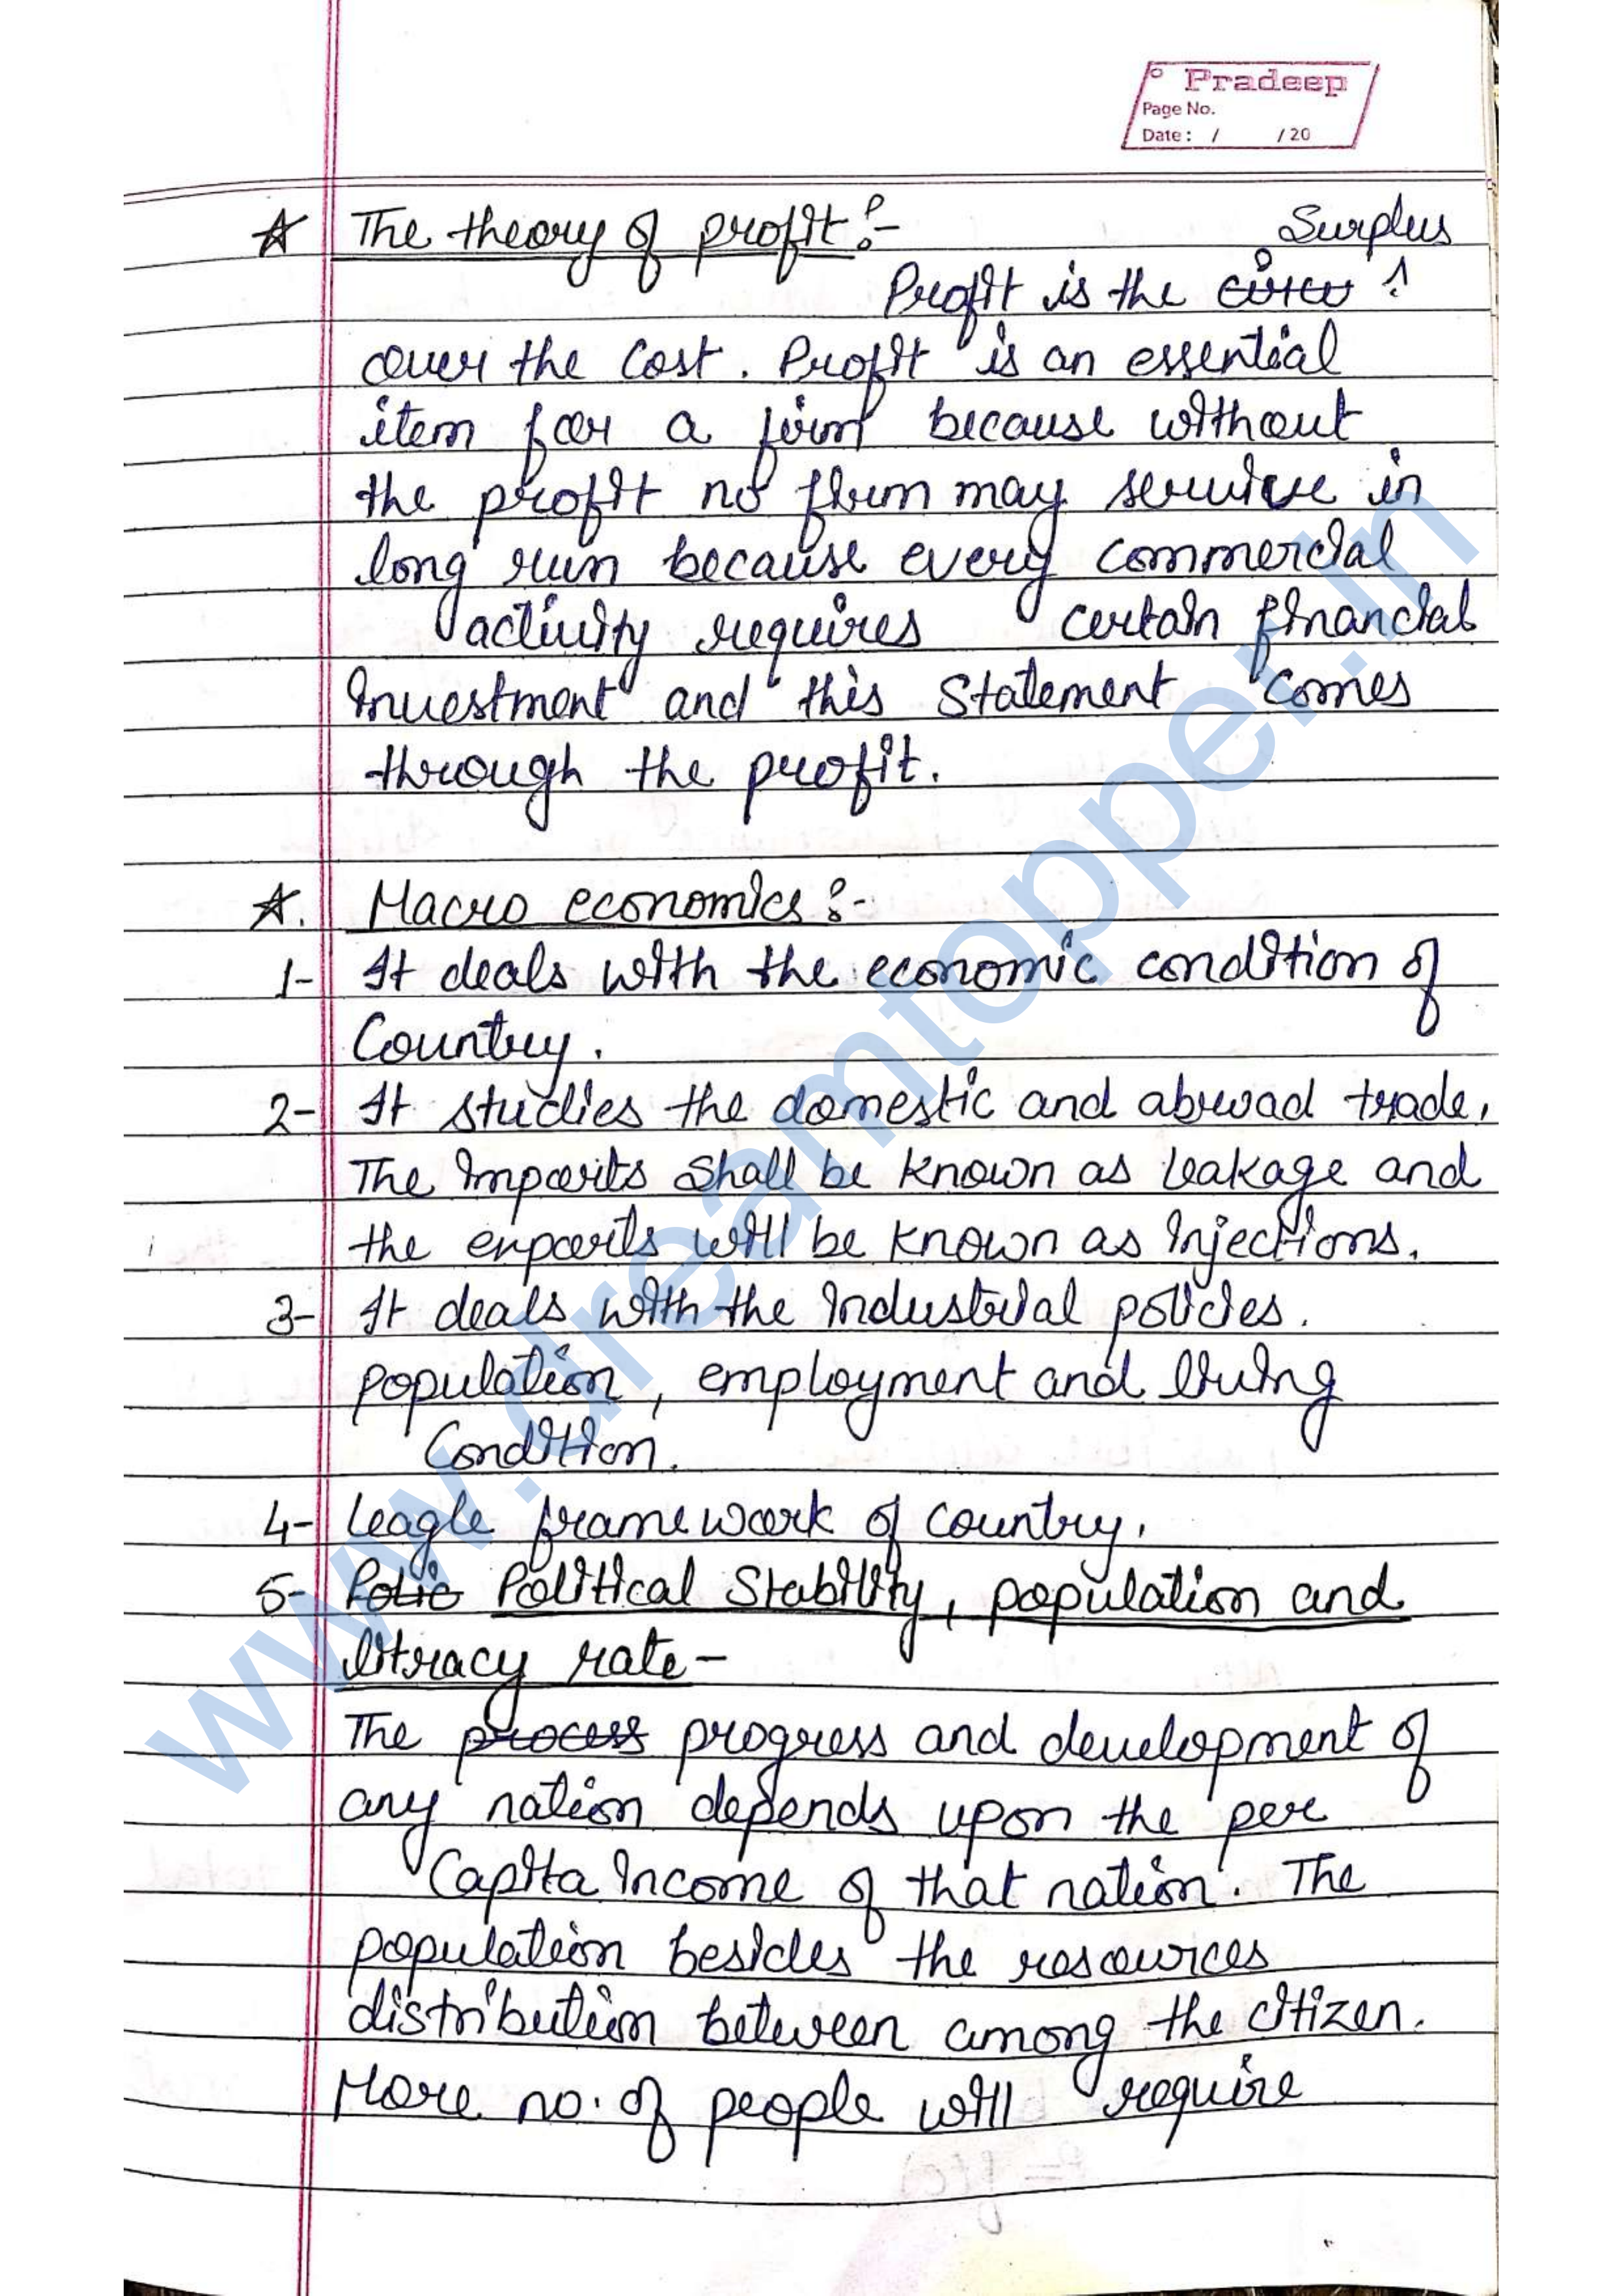 Pradeep
Page No.
Date : / / 20
☆ The theory of profit :-
Surplus
Profit is the
over the cost. Profit is an essential
item for a firm because without
the profit no firm may servive in
long run because every commercial
activity requires certain financial
Investment and this Statement comes
through the profit.
☆. Macro economics :-
1- It deals with the economic condition of
Country.
2- It studies the domestic and abroad trade.
The Imports Shall be known as leakage and
the exports will be known as Injections.
3- It deals with the Industrial policies.
population, employment and living
Condition.
4- leagle frame work of country.
5- Polic Political Stability, population and
litracy rate -
The process progress and development of
any nation depends upon the per
Capita Income of that nation. The
population besides the resources
distribution between among the citizen.
More no. of people will require
www.dreamtopper.in